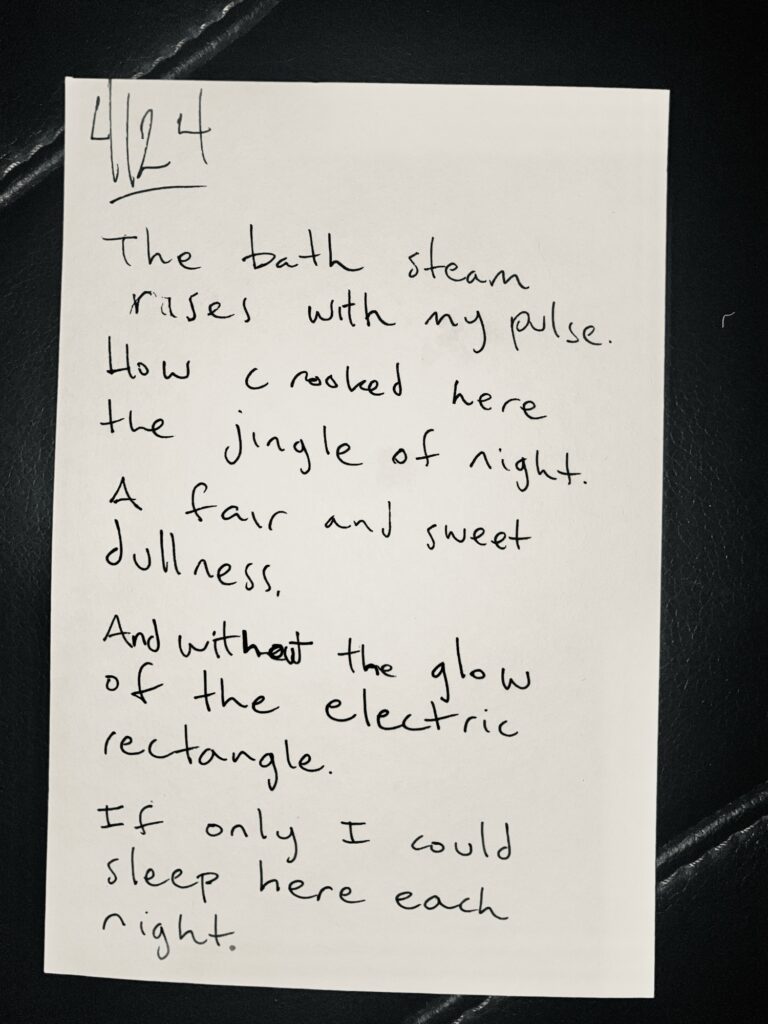 4/24
The bath steam
rises with my pulse.
How crooked here
the jingle of night.
A fair and sweet
dullness.
And without the glow
of the electric
rectangle.
If only I could
sleep here each
night.